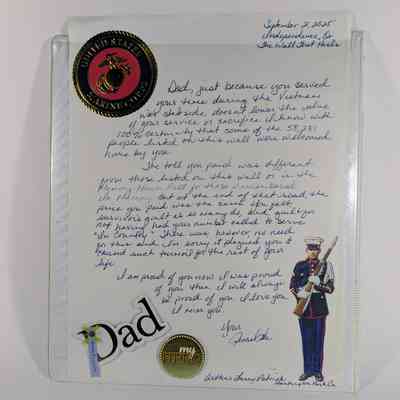 September 2, 2025
Independence,
The Wall That Heals
UNITED STATES
MARINE CORPS
Dad, just because you served
your time during the Vietnam
war stateside doesn't lower the value
of your service or sacrifice. I know with
100% certainty that some of the 58,281
people listed on this wall were welcomed
home by you.
The toll you paid was different
from those listed on this wall or in the
But at the end of that road, the
price you paid was the same. You felt
survivor's guilt as so many do, and guilt for
not having had your number called to serve
"In Country". There was however, no need
for this Dad. I'm sorry it plagued you &
caused such turmoil for the rest of your
life.
I am proud of you now. I was proud
of you then. I will always
be proud of you. I love you.
I miss you.
Your
Dad
my
Arthur Patrick